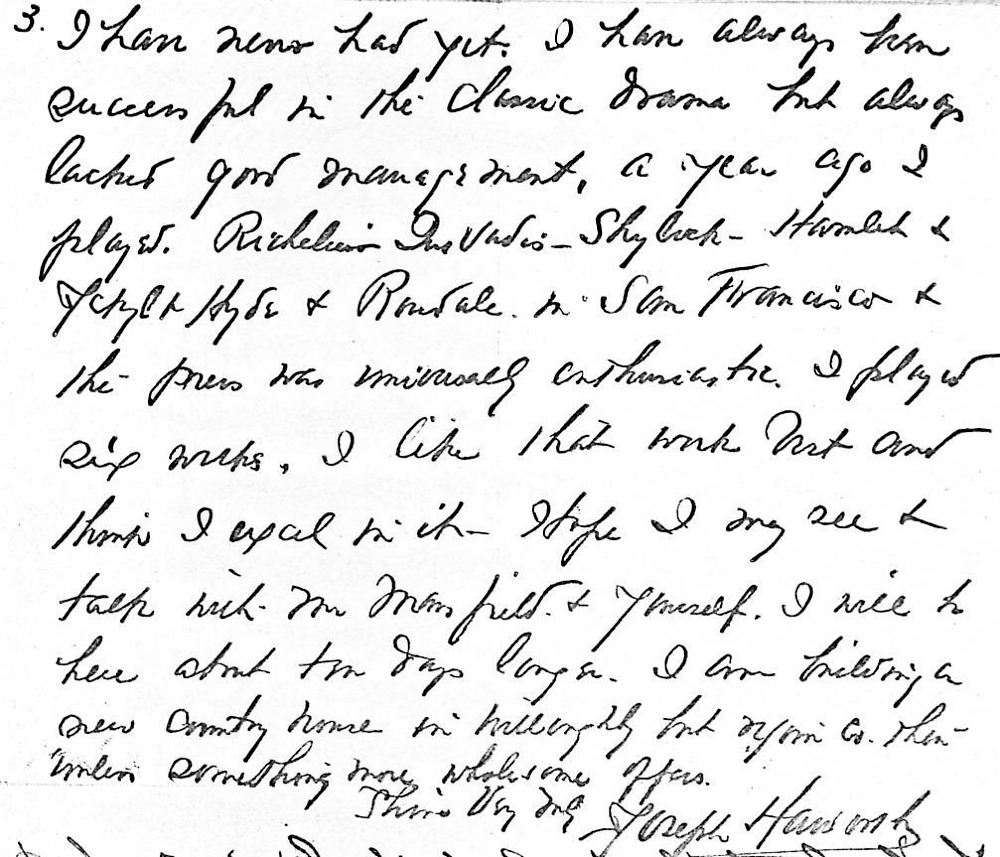 3. I have never had yet. I have always been
successful in the Classic drama but always
lacked good management. a year ago I
played. Richelieu Quo Vadis - Shylock - Hamlet &
Jekyl & Hyde & Rosedale. in San Francisco &
the press was universally enthusiastic. I played
six weeks. I like that work best and
think I excel in it - Hope I may see &
talk with Mr Mansfield. & yourself. I will be
here about ten days longer. I am building a
new country house in Willoughby but rejoin Co. then
unless something more wholesome offers.
Thine Very Truly Joseph Haworth